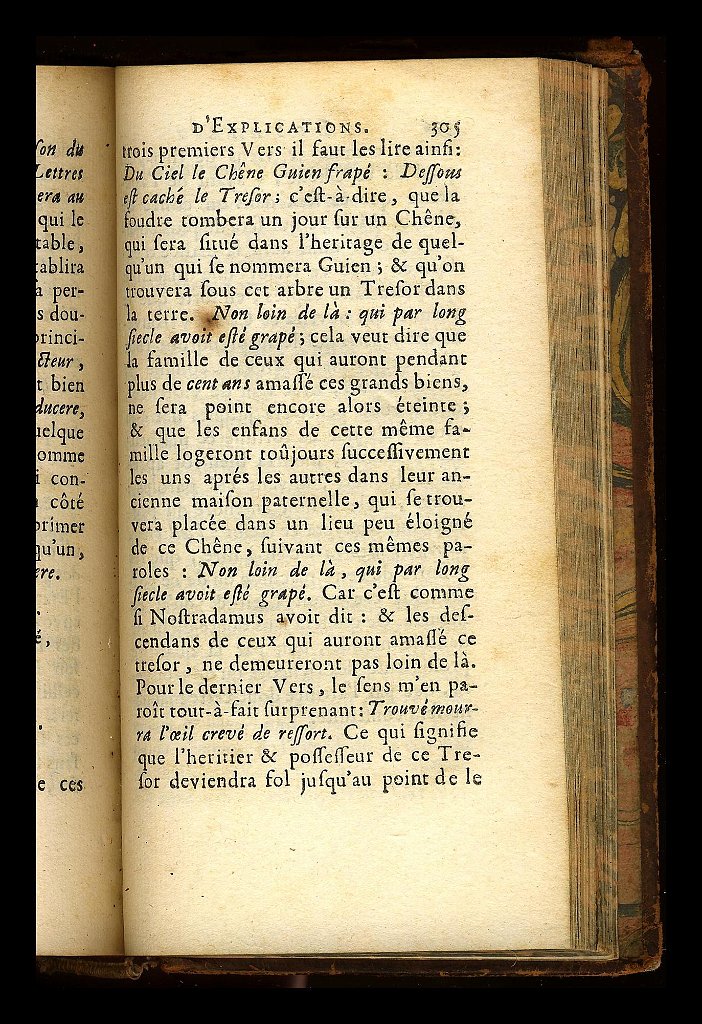 son du
Lettres
era au
qui le
table,
tablira
a per-
s dou-
princi-
cteur,
t bien
ducere,
uelque
omme
i con-
côté
primer
qu'un,
ere.
é,
e ces
D'EXPLICATIONS. 305
trois premiers Vers il faut les lire ainſi:
Du Ciel le Chêne Guien frapé : Deſſous
eſt caché le Treſor; c'eſt-à-dire, que la
foudre tombera un jour ſur un Chêne,
qui ſera ſitué dans l'heritage de quel-
qu'un qui ſe nommera Guien; & qu'on
trouvera ſous cet arbre un Treſor dans
la terre. Non loin de là : qui par long
ſiecle avoit eſté grapé; cela veut dire que
la famille de ceux qui auront pendant
plus de cent ans amaſſé ces grands biens,
ne ſera point encore alors éteinte;
& que les enfans de cette même fa-
mille logeront toûjours ſucceſſivement
les uns aprés les autres dans leur an-
cienne maiſon paternelle, qui ſe trou-
vera placée dans un lieu peu éloigné
de ce Chêne, ſuivant ces mêmes pa-
roles : Non loin de là, qui par long
ſiecle avoit eſté grapé. Car c'eſt comme
ſi Noſtradamus avoit dit : & les deſ-
cendans de ceux qui auront amaſſé ce
treſor, ne demeureront pas loin de là.
Pour le dernier Vers, le ſens m'en pa-
roît tout-à-fait ſurprenant: Trouvé mour-
ra l'œil crevé de reſſort. Ce qui ſignifie
que l'heritier & poſſeſſeur de ce Tre-
ſor deviendra fol juſqu'au point de le